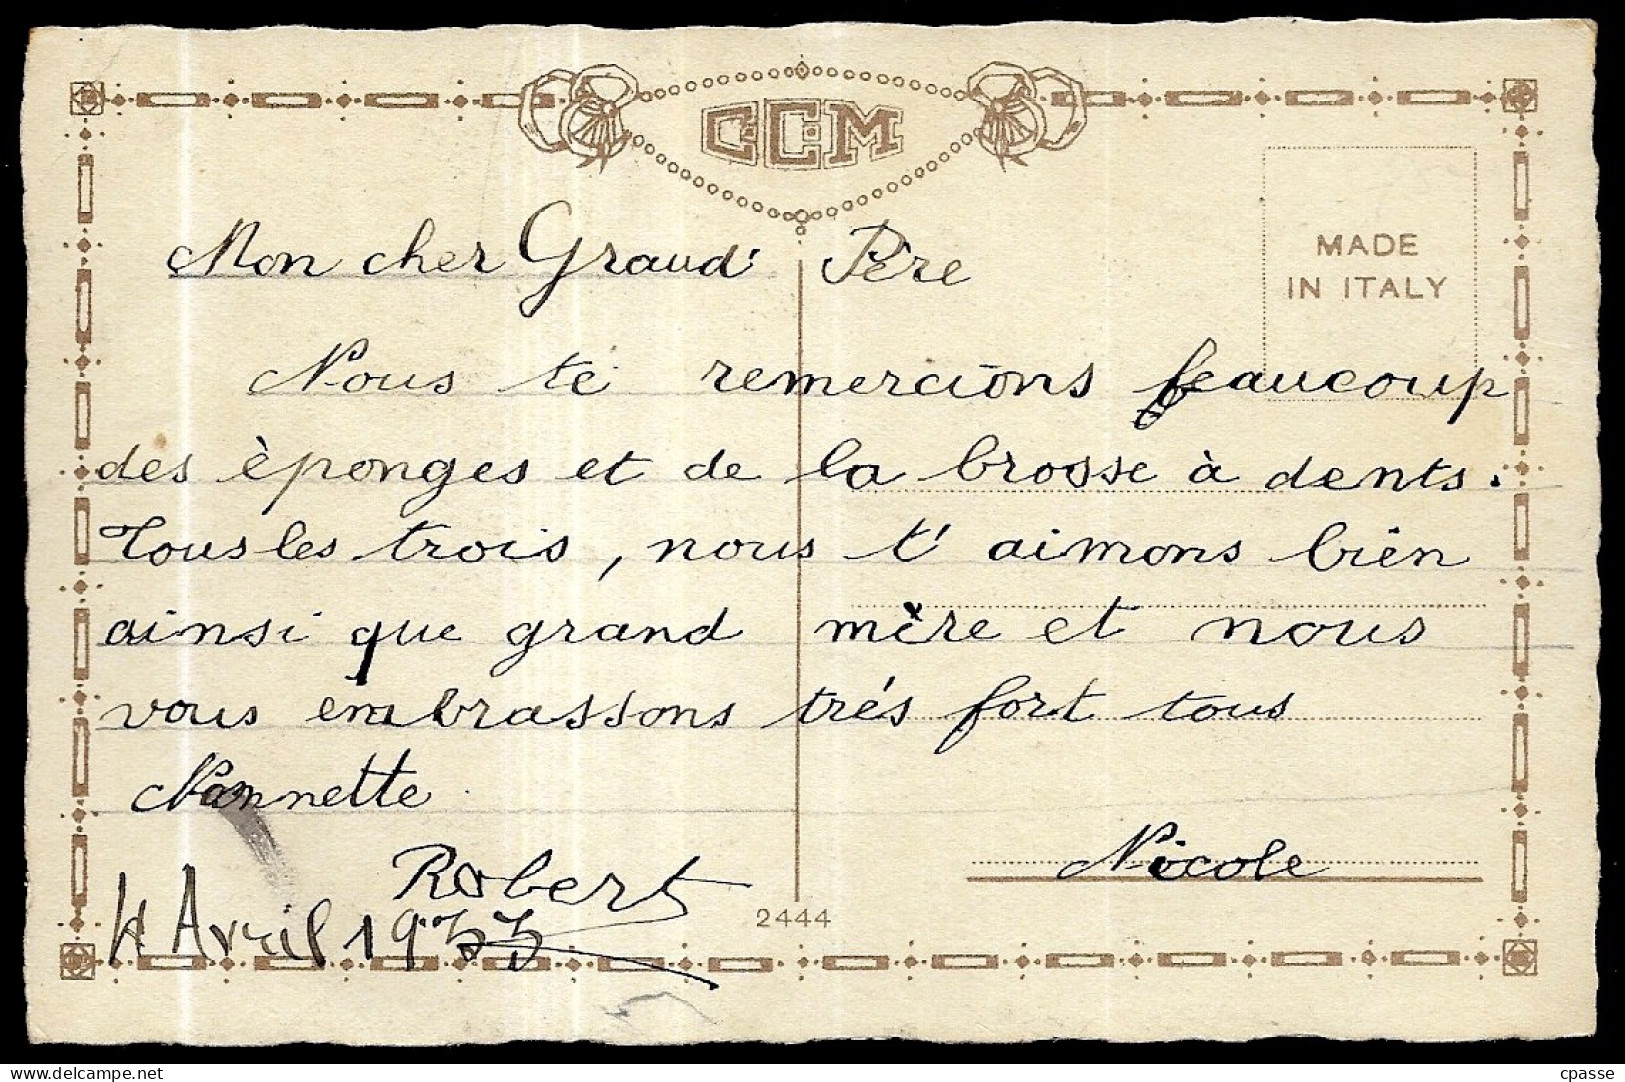 CCM
MADE
IN ITALY
Mon cher Grand' Père
Nous te remercions beaucoup
des éponges et de la brosse à dents.
Tous les trois, nous t'aimons bien
ainsi que grand mère et nous
vous embrassons trés fort tous
Nannette
Robert
Nicole
4 Avril 1933
2444
delcampe.net
cpasse